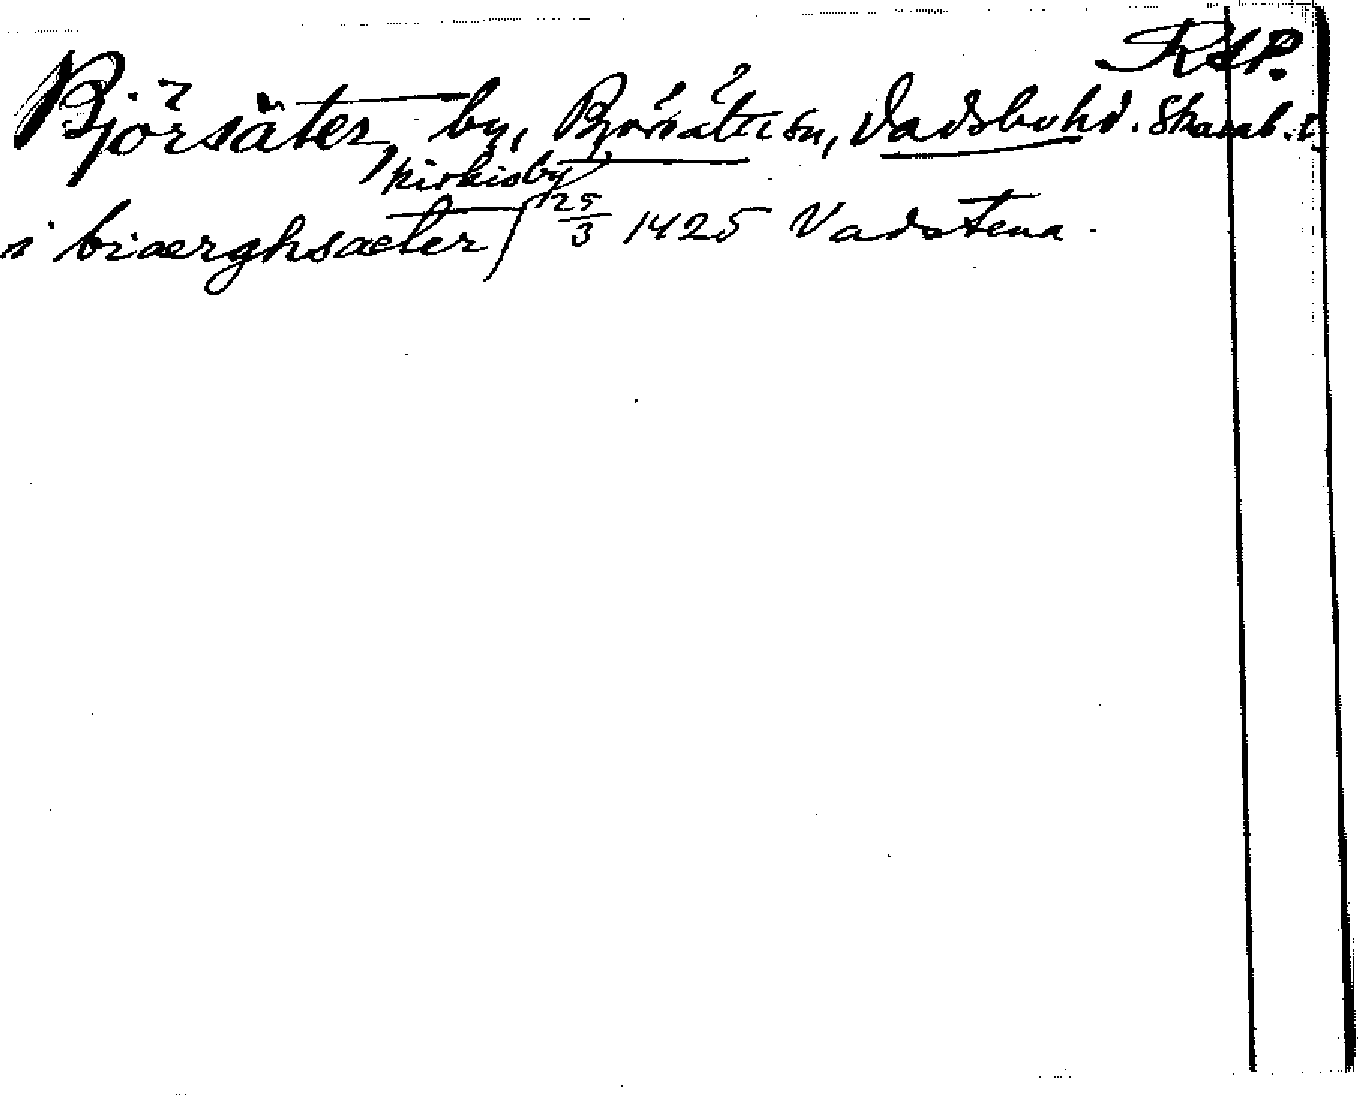 RAP.
Björsäter by, Björsäter sn, Vadsbo hd. Skarab. l.
kirkioby
i biærghsæter 25/3 1425 Vadstena.